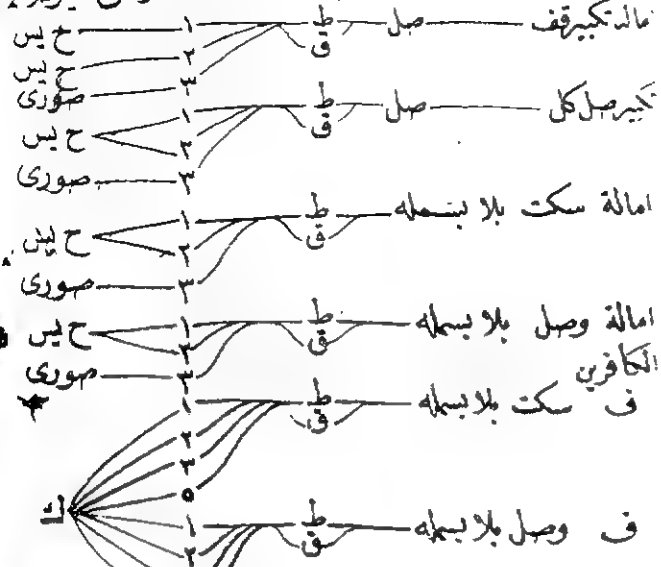 امالة تكبير قف صل ط ١ ح يس
ق ٢ ح يس
٣ صورى
تكبير صل كل صل ط ١ ح يس
ق ٢
٣ صورى
امالة سكت بلا بسمله ط ١ ح يس
ق ٢
٣ صورى
امالة وصل بلا بسمله ط ١ ح يس
ق ٣
الكافرين ٣ صورى
ف سكت بلا بسمله ط ١
ق ٢
٣
٥ ك
ف وصل بلا بسمله ط ١
ق ٢